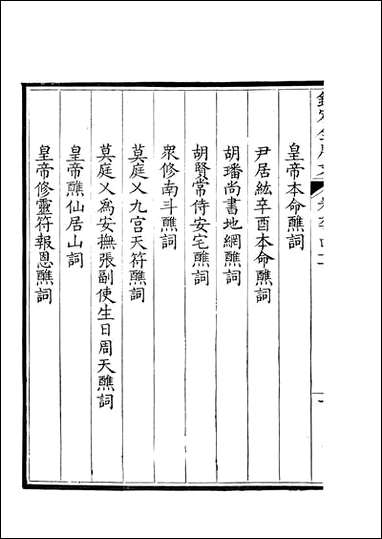 皇帝本命醮詞
尹居紘辛酉本命醮詞
胡璠尚書地網醮詞
胡賢常侍安宅醮詞
衆修南斗醮詞
莫庭乂九宫天符醮詞
莫庭乂爲安撫張副使生日周天醮詞
皇帝醮仙居山詞
皇帝修靈符報恩醮詞